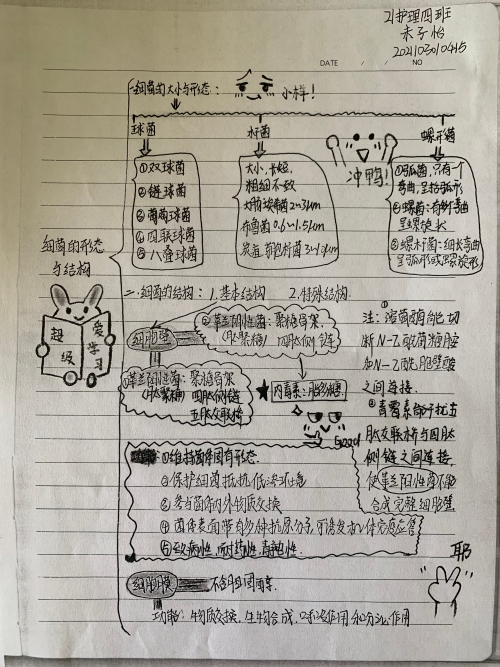 21护理四班
202103010415
DATE / / NO
一.细菌的大小与形态:
小样!
球菌
杆菌
螺形菌
①双球菌
②链球菌
③葡萄球菌
④四联球菌
⑤八叠球菌
大小,长短,
粗细不一致
大肠埃希菌2~3μm
布鲁菌0.6~1.5μm
炭疽芽孢杆菌3~10μm
冲鸭!
①弧菌,只有一个
弯曲,呈括弧形
②螺菌:有数个弯曲
呈螺旋状
③螺杆菌:细长弯曲
呈弧形或螺旋形
细菌的形态
与结构
超级
爱学习
二.细菌的结构: 1.基本结构 2.特殊结构.
细胞壁
②革兰阴性菌:聚糖骨架,
(肽聚糖) 四肽侧链
①革兰阳性菌:聚糖骨架
(肽聚糖) 四肽侧链
五肽交联桥
★ 内毒素:脂多糖
Good
注: ①溶菌酶能切
断N-乙酰葡糖胺
和N-乙酰胞壁酸
之间连接.
②青霉素能干扰五
肽交联桥与四肽
侧链之间连接,
使革兰阳性菌不能
合成完整细胞壁
①维持菌体固有形态.
②保护细菌抵抗低渗环境
③参与菌体内外物质交换
④菌体表面带有多种抗原分子,可诱发机体免疫应答
⑤致病性,耐药性,毒性.
耶
细胞膜 不含胆固醇等.
功能: 物质交换, 生物合成, 呼吸作用和分泌作用